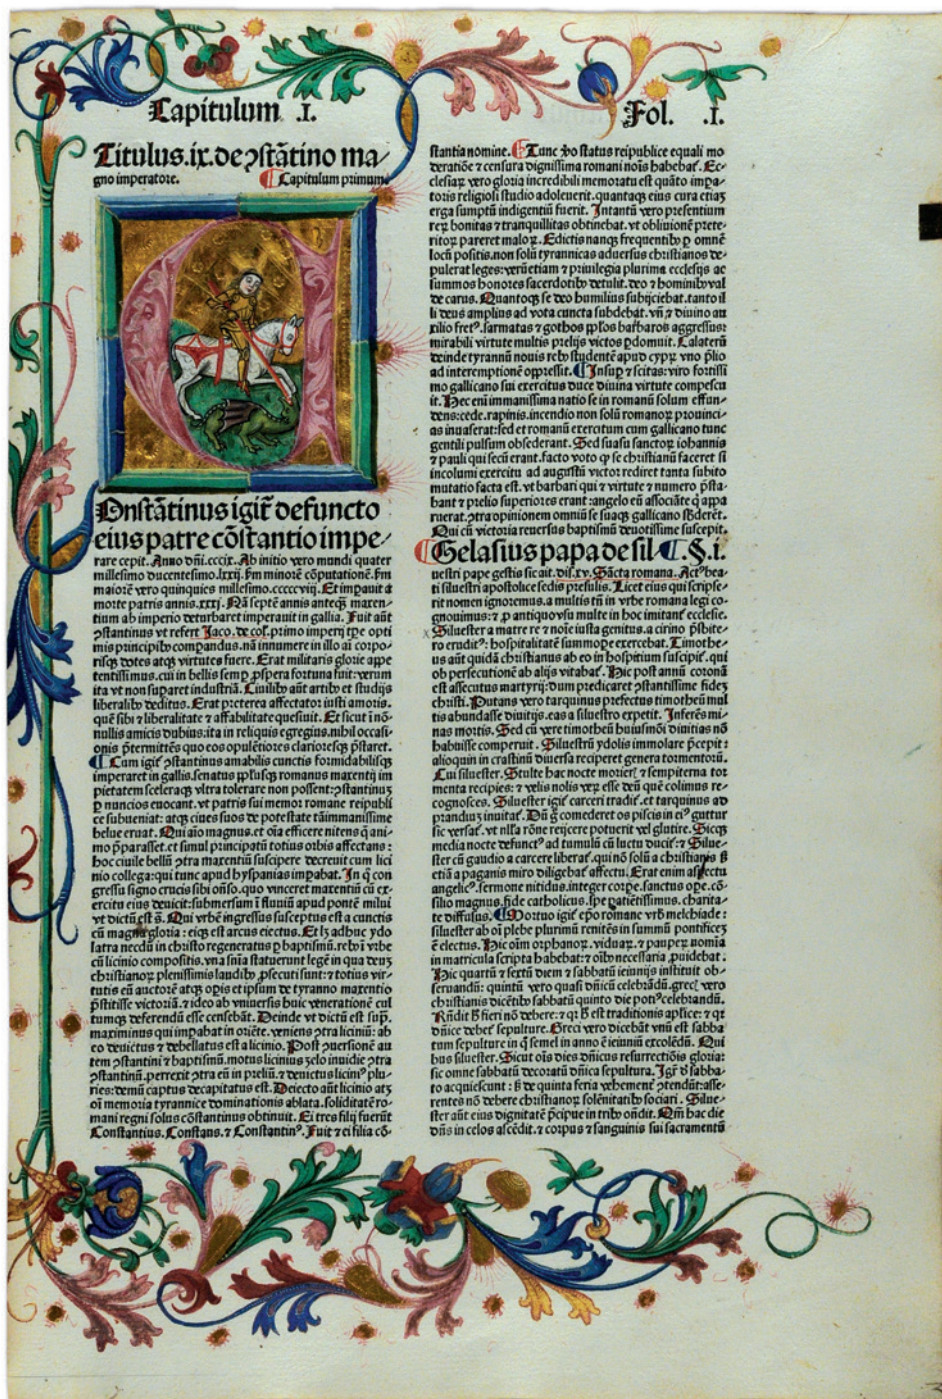 Capitulum .I.
Fol. .I.
Titulus.ix.de ꝯstãtino ma⸗
gno imperatore. Capitulum primum
Onstãtinus igit̃ defuncto
eius patre cõstantio impe⸗
rare cepit. Anno dñi.cccix. Ab initio vero mundi quater
millesimo ducentesimo.lxxij. ẜm minorẽ cõputationẽ. ẜm
maiorẽ vero quinquies millesimo.cccccviij. Et impauit a
morte patris annis.xxxj. Nã septẽ annis anteꝗ̃ maxen⸗
tium ab imperio deturbaret imperauit in gallia. Fuit aũt
ꝯstantinus vt refert Iaco. de col. primo imperij tꝑe opti
mis principibꝰ comꝑandus. nã innumere in illo aĩ corpo⸗
risqꝫ dotes atqꝫ virtutes fuere. Erat militaris glorie appe
tentissimus. cui in bellis semꝑ ꝓspera fortuna fuit: verum
ita vt non suꝑaret industriã. Ciuilibꝰ aũt artibꝰ et studijs
liberalibꝰ deditus. Erat preterea affectator iusti amoris.
quẽ sibi ⁊ liberalitate ⁊ affabilitate quesiuit. Et sicut ĩ nõ⸗
nullis amicis dubius: ita in reliquis egregius. nihil occasi⸗
onis p̃termittẽs quo eos opulẽtiores clarioresqꝫ p̃staret.
Cum igit̃ ꝯstantinus amabilis cunctis formidabilisqꝫ
imperaret in gallis. senatus ppl̃usqꝫ romanus maxentij im
pietatem sceleraqꝫ vltra tolerare non possent: ꝯstantinuꝫ
ꝑ nuncios euocant. vt patris sui memor romane reipubli
ce subueniat: atqꝫ ciues suos de potestate tãimmanissime
belue eruat. Qui aĩo magnus. et oĩa efficere nitens q̃ ani⸗
mo p̃parasset. et simul principatũ totius orbis affectans:
hoc ciuile bellũ ꝯtra maxentiũ suscipere decreuit cum lici
nio collega: qui tunc apud hyspanias imꝑabat. In q̃ con
gressu signo crucis sibi oñso. quo vinceret maxentiũ cũ ex⸗
ercitu eius deuicit: submersum ĩ fluuiũ apud pontẽ milui
vt dictũ est s̃. Qui vrbẽ ingressus susceptus est a cunctis
cũ magna gloria: eiqꝫ est arcus eiectus. Et lꝫ adhuc ydo
latra necdũ in christo regeneratus ꝑ baptismũ. rebꝰ ĩ vrbe
cũ licinio compositis. vna sñia statuerunt legẽ in qua deuꝫ
christianoꝝ plenissimis laudibꝰ ꝓsecuti sunt: ⁊ totius vir⸗
tutis eũ auctorẽ atqꝫ opis et ipsum de tyranno maxentio
p̃stitisse victoriã. ⁊ ideo ab vniuersis huic venerationẽ cul
tumqꝫ deferendũ esse censebãt. Deinde vt dictũ est sup̃.
maximinus qui imꝑabat in oriẽte. veniens ꝯtra liciniũ: ab
eo deuictus ⁊ debellatus est a licinio. Post ꝯuersionẽ au
tem ꝯstantini ⁊ baptismũ. motus licinius zelo inuidie ꝯtra
ꝯstantinũ. perrexit ꝯtra eũ in preliũ. ⁊ deuictus licini⁹ plu⸗
ries: demũ captus decapitatus est. Deiecto aũt licinio atꝫ
oĩ memoria tyrannice dominationis ablata. soliditatẽ ro⸗
mani regni solus cõstantinus obtinuit. Ei tres filij fuerũt
Constantius. Constans. ⁊ Constantin⁹. Fuit ⁊ ei filia cõ⸗
stantia nomine. Tunc ꝟo status reipublice equali mo
deratiõe ⁊ censura dignissima romani noĩs habebat̃. Ec⸗
clesiaꝝ vero gloria incredibili memoratu est quãto imꝑa⸗
toris religiosi studio adoleuerit. quantaqꝫ eius cura etiaꝫ
erga sumptũ indigentiũ fuerit. Intantũ vero presentium
reꝝ bonitas ⁊ tranquillitas obtinebat. vt obliuionẽ prete⸗
ritoꝝ pareret maloꝝ. Edictis nanqꝫ frequentibꝰ ꝑ omnẽ
locũ positis. non solũ tyrannicas aduersus christianos de⸗
pulerat leges: verũetiam ⁊ priuilegia plurima ecclesijs ac
summos honores sacerdotibꝰ detulit. deo ⁊ hominibꝰ val
de carus. Quantoqꝫ se deo humilius subijciebat. tanto il
li deus amplius ad vota cuncta subdebat. vñ ⁊ diuino au
xilio fret⁹. sarmatas ⁊ gothos ppl̃os barbaros aggressus:
mirabili virtute multis prelijs victos ꝑdomuit. Calaterũ
deinde tyrannũ nouis rebꝰ studentẽ apud cypꝝ vno ꝓlio
ad interemptionẽ oppressit. Insuꝑ ⁊ scitas: viro fortissi
mo gallicano sui exercitus duce diuina virtute compescu
it. Hec eñi immanissima natio se in romanũ solum effun⸗
dens: cede. rapinis. incendio non solũ romanoꝝ prouinci⸗
as inuaserat: sed et romanũ exercitum cum gallicano tunc
gentili pulsum obsederant. Sed suasu sanctoꝝ iohannis
⁊ pauli qui secũ erant. facto voto ꝙ se christianũ faceret si
incolumi exercitu ad augustũ victor rediret tanta subito
mutatio facta est. vt barbari qui ⁊ virtute ⁊ numero p̃sta⸗
bant ⁊ prelio superiores erant: angelo eũ associãte q̃ appa
ruerat. ꝯtra opinionem omniũ se suaqꝫ gallicano ſbderẽt.
Qui cũ victoria reuersus baptismũ deuotissime suscepit.
Gelasius papa de sil⸗ §.i.
uestri pape gestis sic ait. dis. xv. Sãcta romana. Act⁹ bea⸗
ti siluestri apostolice sedis presulis. Licet eius qui scripse⸗
rit nomen ignoremus. a multis tñ in vrbe romana legi co⸗
gnouimus: ⁊ ꝓ antiquo vsu multe in hoc imitant̃ ecclesie.
Siluester a matre re ⁊ noĩe iusta genitus. a cirino p̃sbite⸗
ro erudit⁹: hospitalitatẽ summope exercebat. Timothe⸗
us aũt quidã christianus ab eo in hospitium suscipit̃. qui
ob persecutionẽ ab alijs vitabat̃. Hic post annũ coronã
est assecutus martyrij: dum predicaret ꝯstantissime fideꝫ
christi. Putans vero tarquinus prefectus timotheũ mul
tis abundasse diuitijs. eas a siluestro expetit. Inferẽs mi⸗
nas mortis. Sed cũ vere timotheũ huiusmõi diuitias nõ
habuisse comperuit. Siluestrũ ydolis immolare p̃cepit:
alioquin in crastinũ diuersa reciperet genera tormentoꝝ.
Cui siluester. Stulte hac nocte morier̃ ⁊ sempiterna tor
menta recipies: ⁊ velis nolis verũ esse deũ quẽ colimus re⸗
cognosces. Siluester igit̃ carceri tradit̃. et tarquinus ad
prandiuꝫ inuitat̃. Dũ g̃ comederet os piscis in ei⁹ guttur
sic versat̃. vt nll̃a rõne reijcere potuerit vel glutire. Sicqꝫ
media nocte defunct⁹ ad tumulũ cũ luctu ducit̃: ⁊ Silue⸗
ster cũ gaudio a carcere liberat̃. qui nõ solũ a christianis ſꝫ
etiã a paganis miro diligebat̃ affectu. Erat enim aspectu
angelic⁹. sermone nitidus. integer corꝑe. sanctus oꝑe. cõ⸗
silio magnus. fide catholicus. spe patiẽtissimus. charita⸗
te diffusus. Mortuo igit̃ ep̃o romane vrb̃ melchiade:
siluester ab oĩ plebe plurimũ renitẽs in summũ pontificeꝫ
ẽ electus. Hic oĩm orphanoꝝ. viduaꝝ. ⁊ pauperꝝ nomĩa
in matricula scripta habebat: ⁊ oĩbꝰ necessaria ꝓuidebat.
Hic quartũ ⁊ sextũ diem ⁊ sabbatũ ieiunijs instituit ob⸗
seruandũ: quintũ vero quasi dñicũ celebrãdũ. grec̃ vero
christianis dicẽtibꝰ sabbatũ quinto die poti⁹ celebrandũ.
Rñdit ſꝫ fieri nõ debere: ⁊ qꝛ ſꝫ est traditionis apl̃ice: ⁊ qꝛ
dñice debet̃ sepulture. Greci vero dicebãt vnũ est sabba
tum sepulture in q̃ semel in anno ẽ ieiuniũ excolẽdũ. Qui
bus siluester. Sicut oĩs dies dñicus resurrectiõis gloria:
sic omne sabbatũ decoratũ dñica sepultura. Igit̃ d̃ sabba⸗
to acquiescunt: ſꝫ de quinta feria vehement̃ ꝯtendũt: asse⸗
rentes nõ debere christianoꝝ solẽnitatibꝰ sociari. Silue⸗
ster aũt eius dignitatẽ p̃cipue in tribꝰ oñdit. Qm̃ hac die
dñs in celos ascẽdit. ⁊ corpus ⁊ sanguinis sui sacramentũ